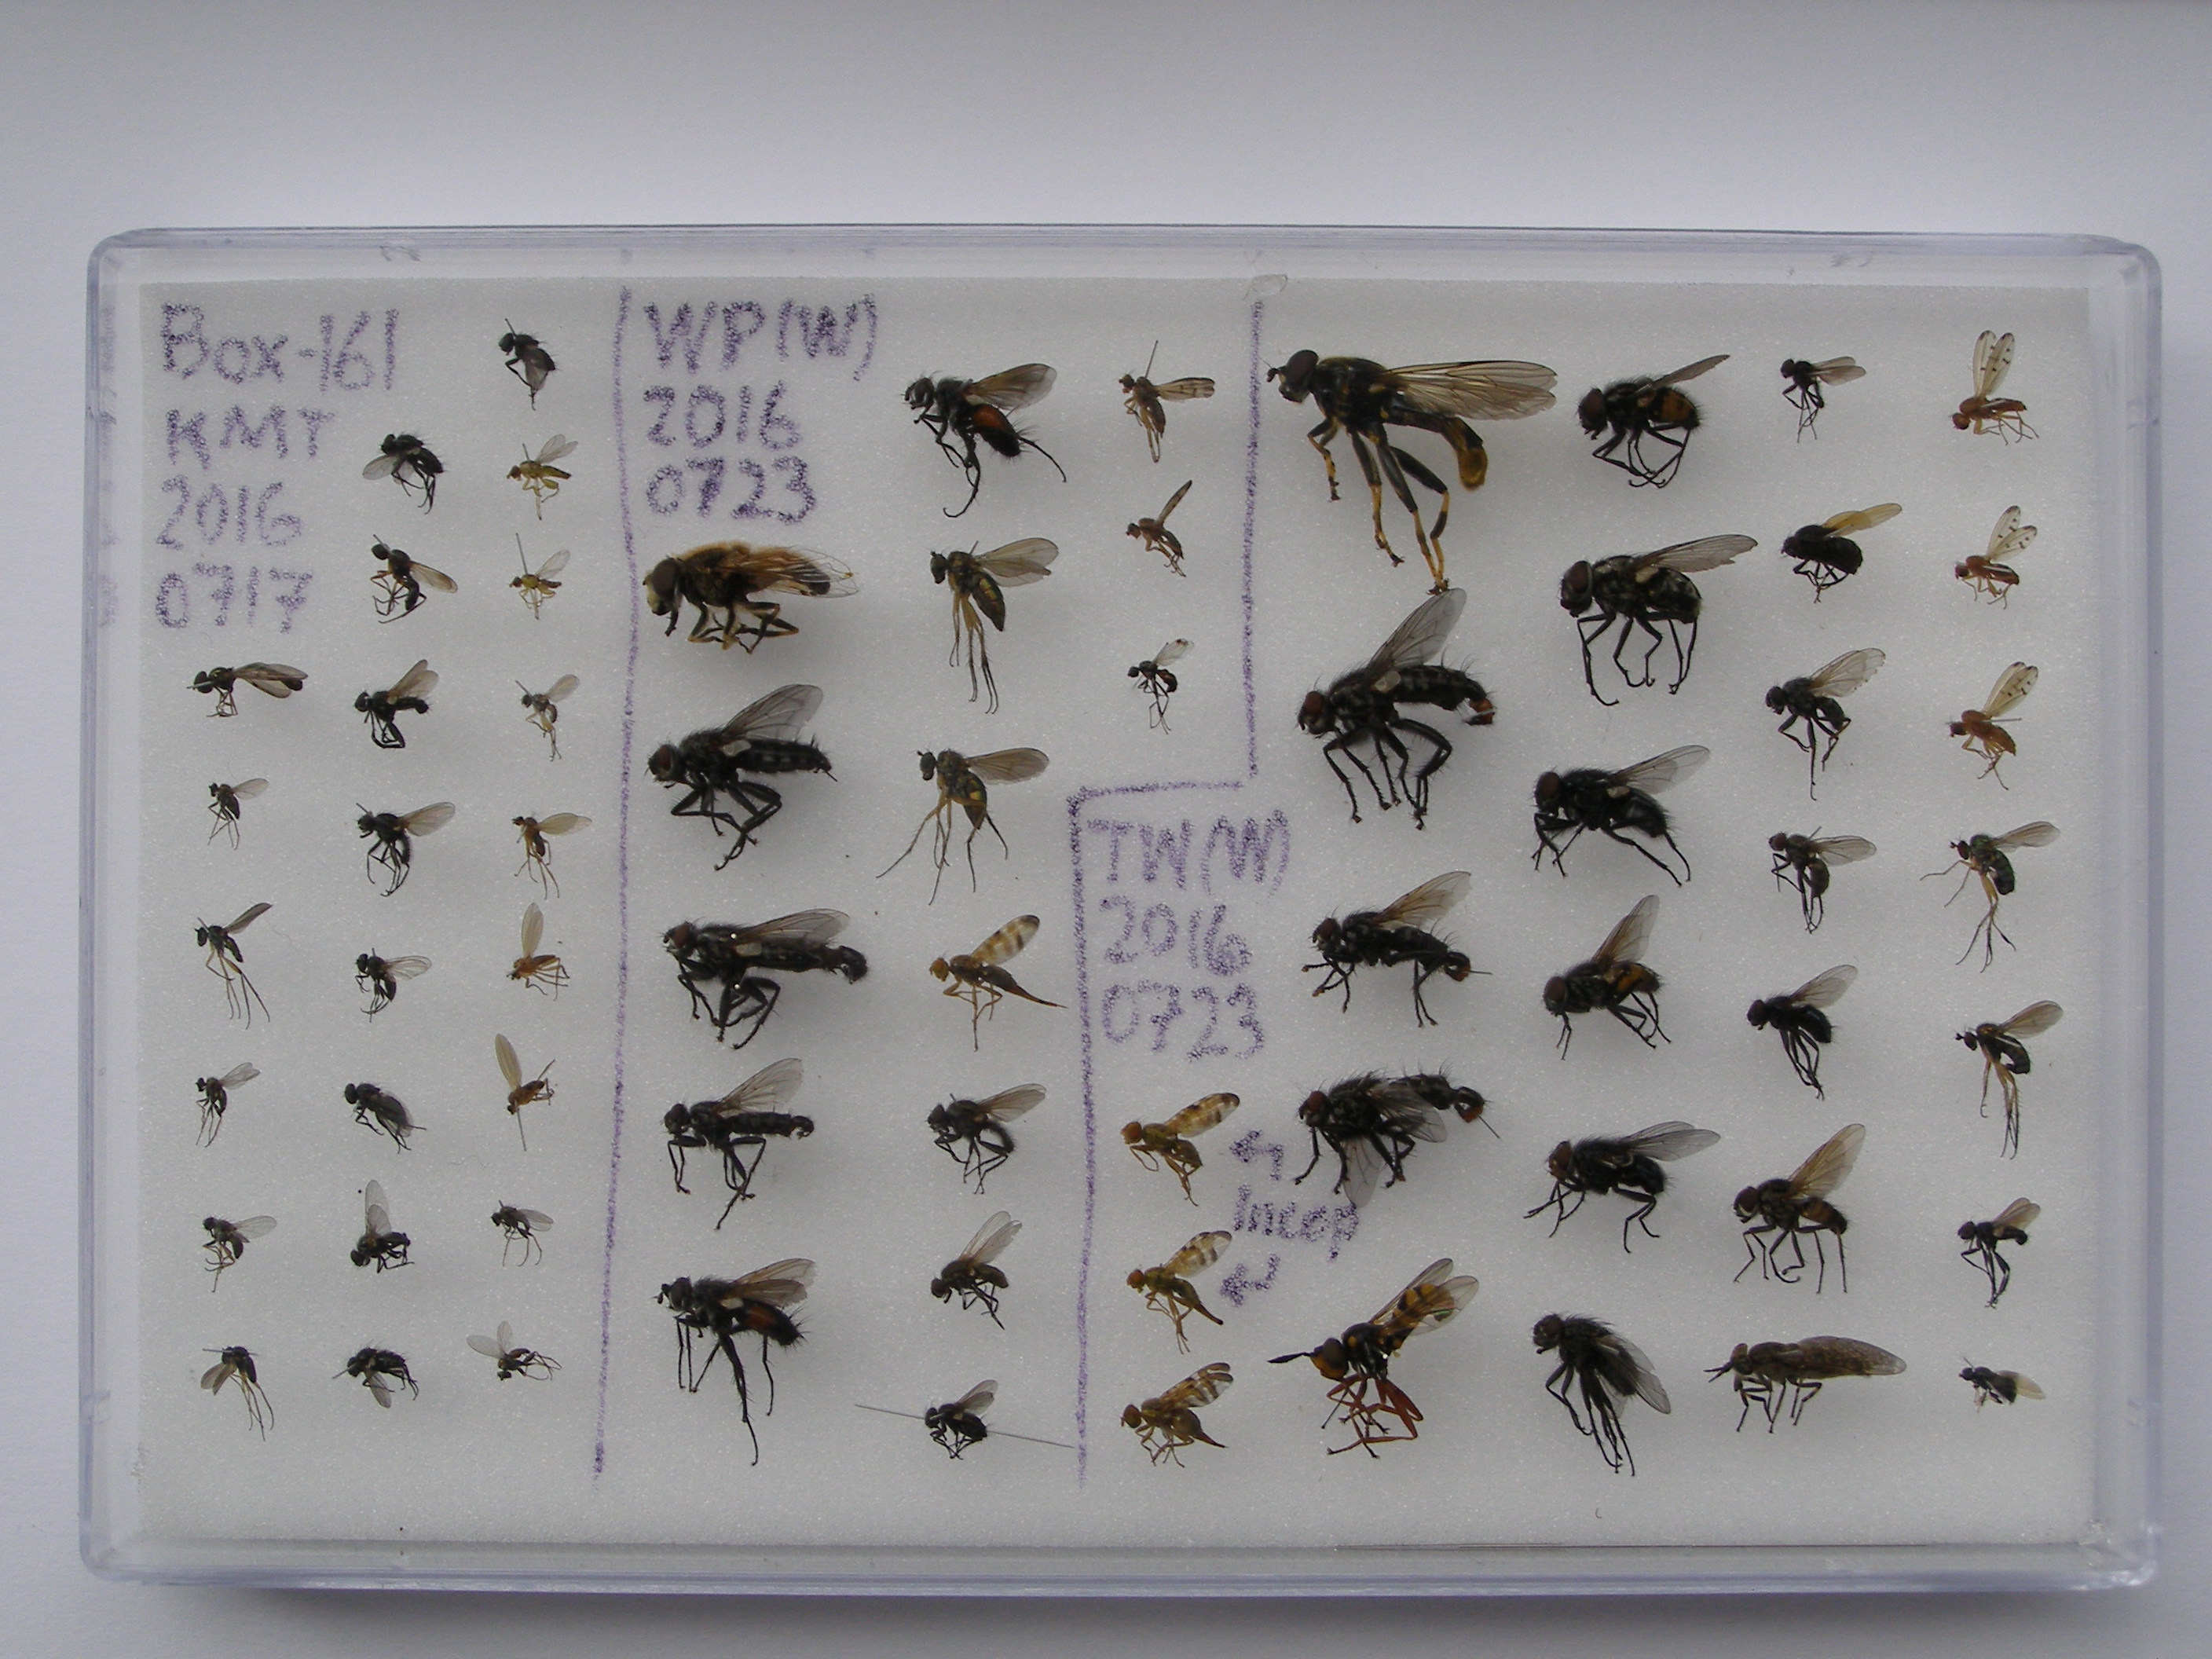 Box-161
KMT
2016
0717
WP(W)
2016
0723
TW(W)
2016
0723
Incep